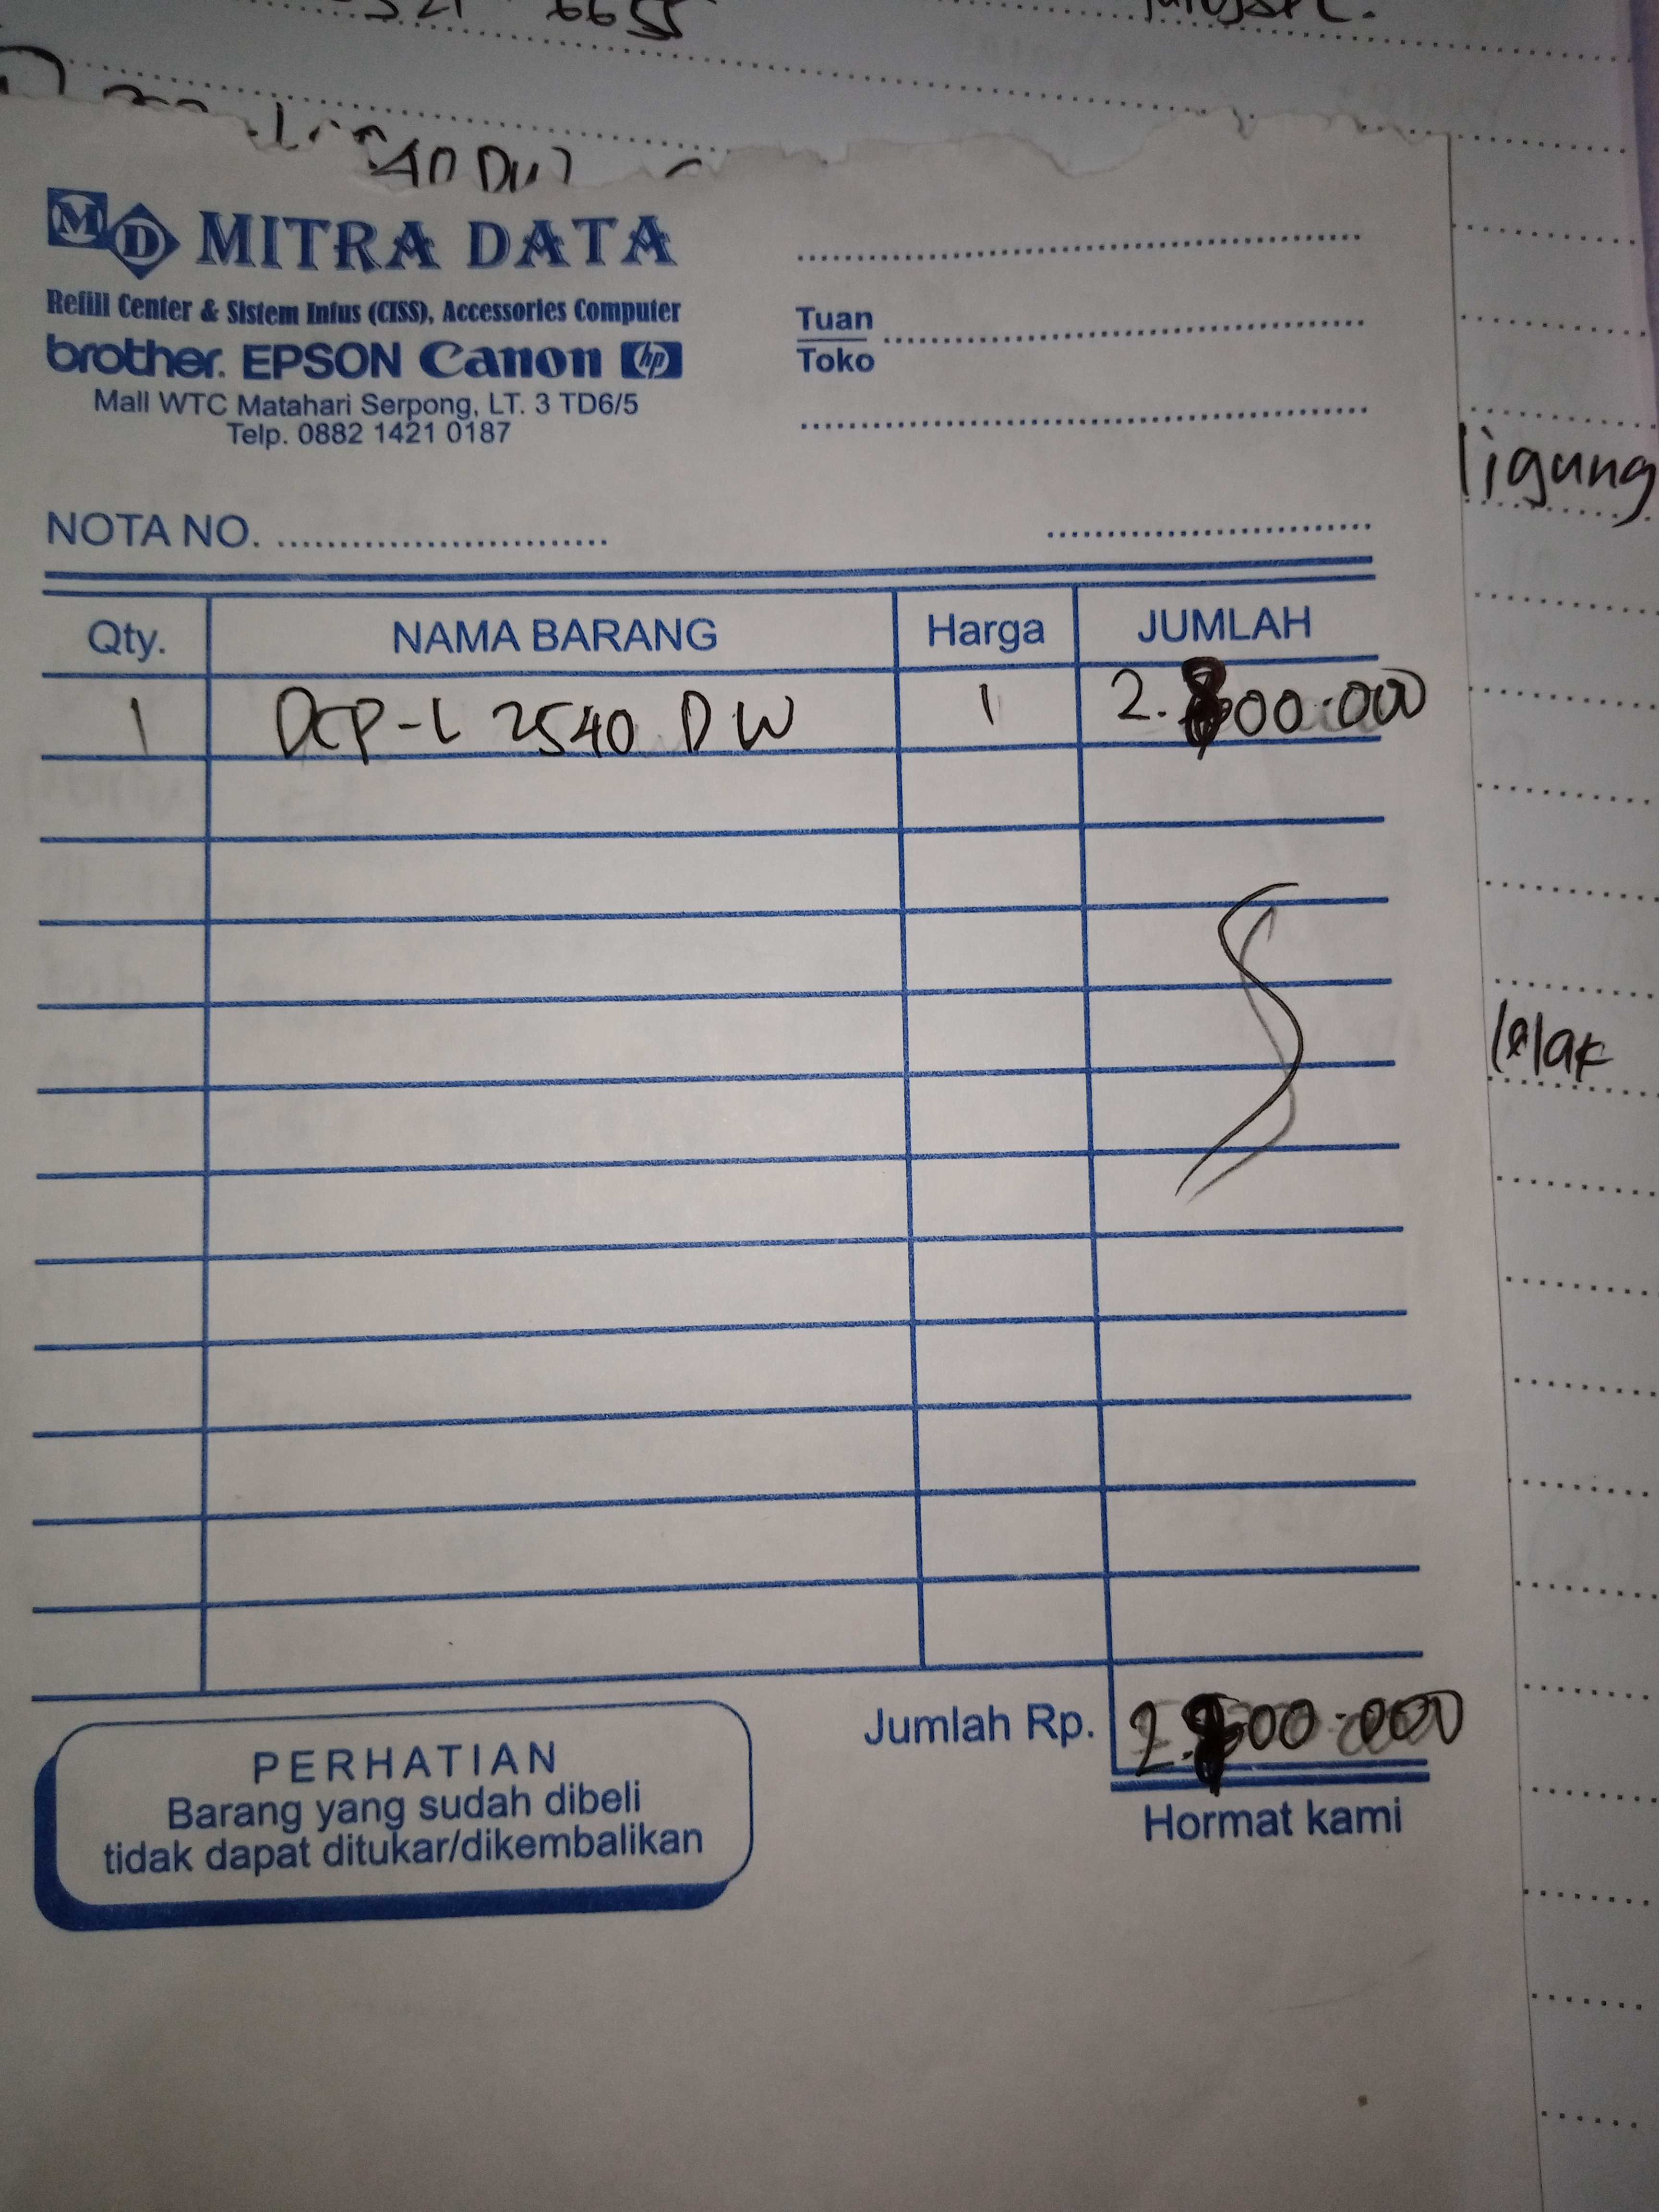 6655
MD MITRA DATA
Refill Center & Sistem Infus (CISS), Accessories Computer
brother. EPSON Canon hp
Mall WTC Matahari Serpong, LT. 3 TD6/5
Telp. 0882 1421 0187
Tuan
Toko
ligung
NOTA NO.
Qty. NAMA BARANG Harga JUMLAH
1 DCP-L 2540 DW 1 2.800.000
Jumlah Rp. 2.800.000
PERHATIAN
Barang yang sudah dibeli
tidak dapat ditukar/dikembalikan
Hormat kami